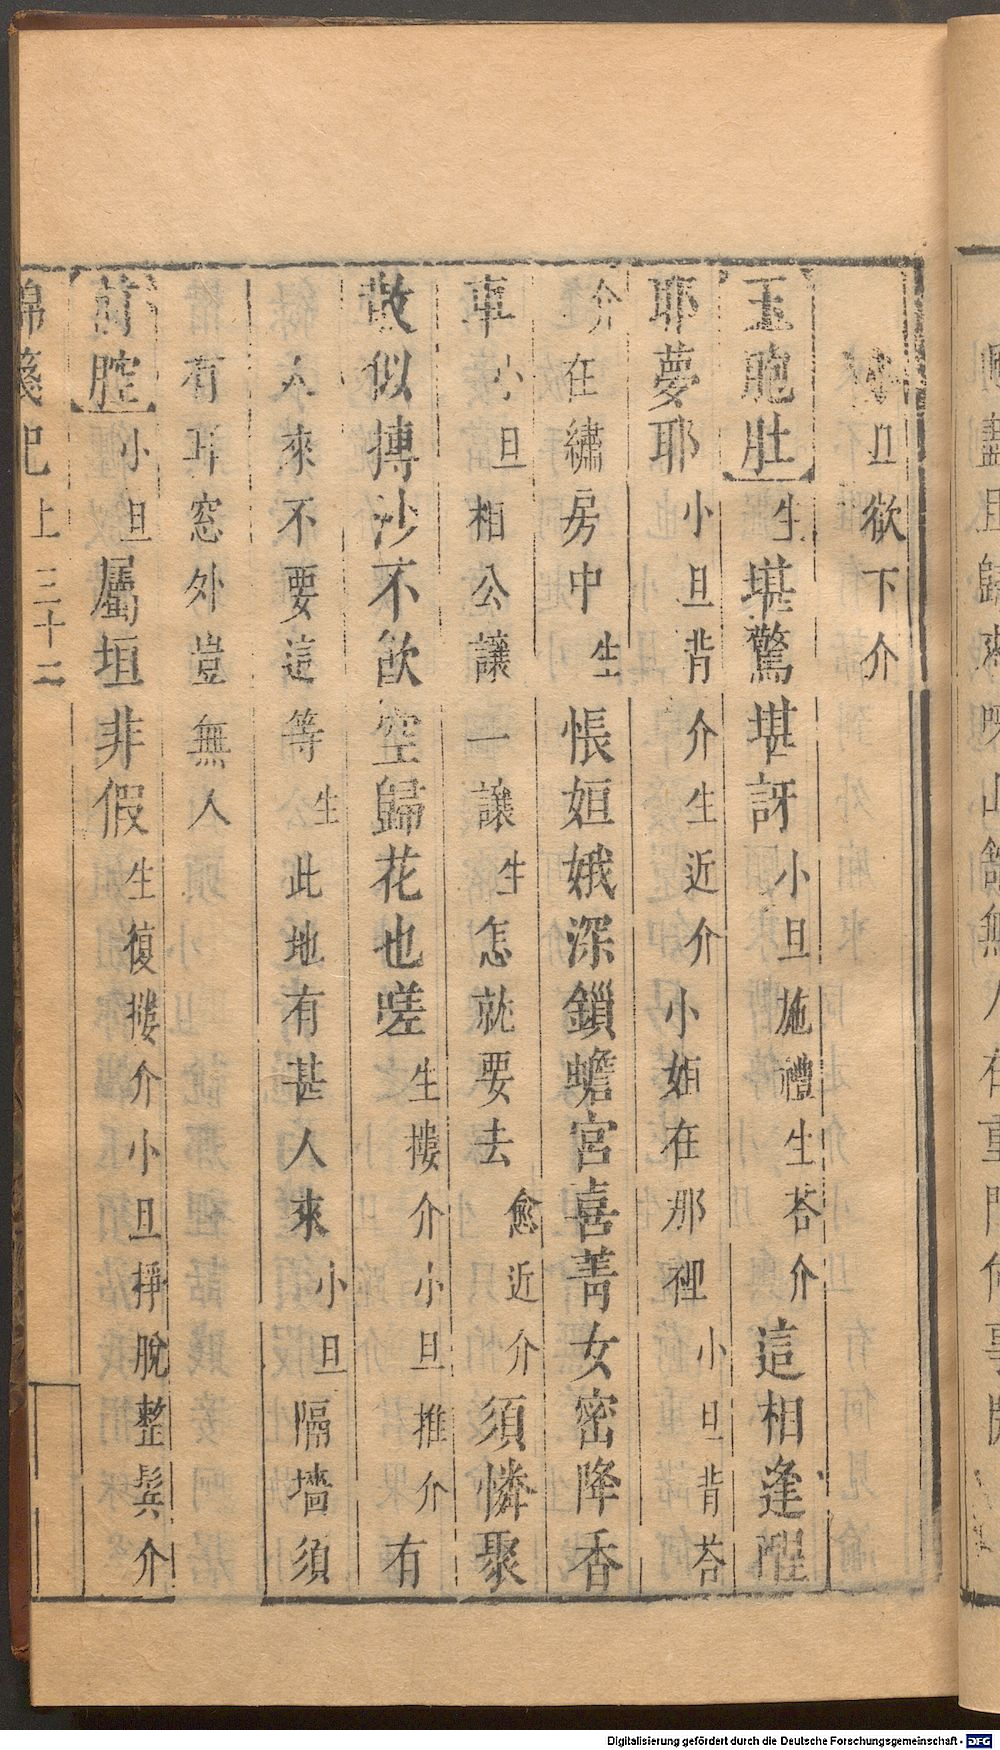 小旦欲下介
玉胞肚 生 堪驚堪訝 小旦施禮生荅介 這相逢醒
耶夢耶 小旦背介生近介小姐在那裡 小旦背荅
介 在繡房中 生 悵姮娥深鎖蟾宮喜菁女密降香
車 小旦 相公讓一讓 生 怎就要去 愈近介 須憐聚
散似摶沙不飲空歸花也嗟 生摟介小旦推介 有
人來不要這等 生 此地有甚人來 小旦 隔墻須
有耳窓外豈無人
前腔 小旦 屬垣非假 生復摟介小旦掙脫整鬂介
錦箋記 上 三十二
Digitalisierung gefördert durch die Deutsche Forschungsgemeinschaft - DFG